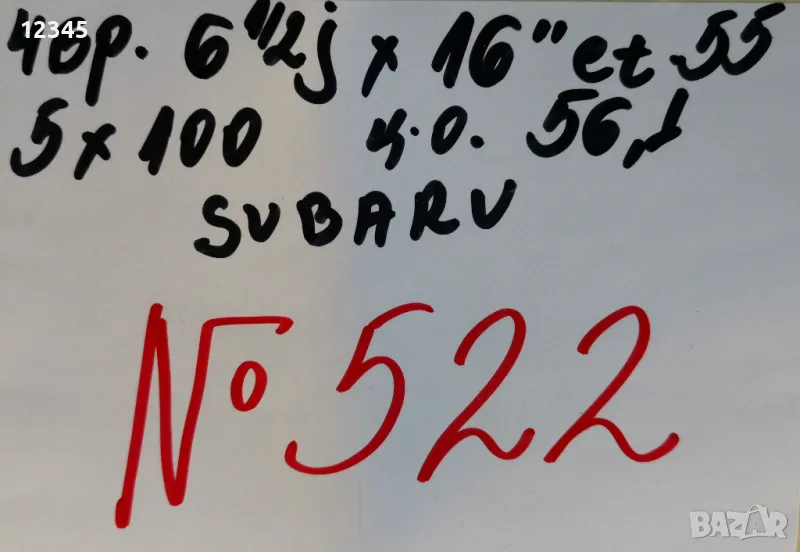 12345
4бр. 6 1/2j x 16" et 55
5x100 ц.о. 56,1
SUBARU
№522
BAZAR